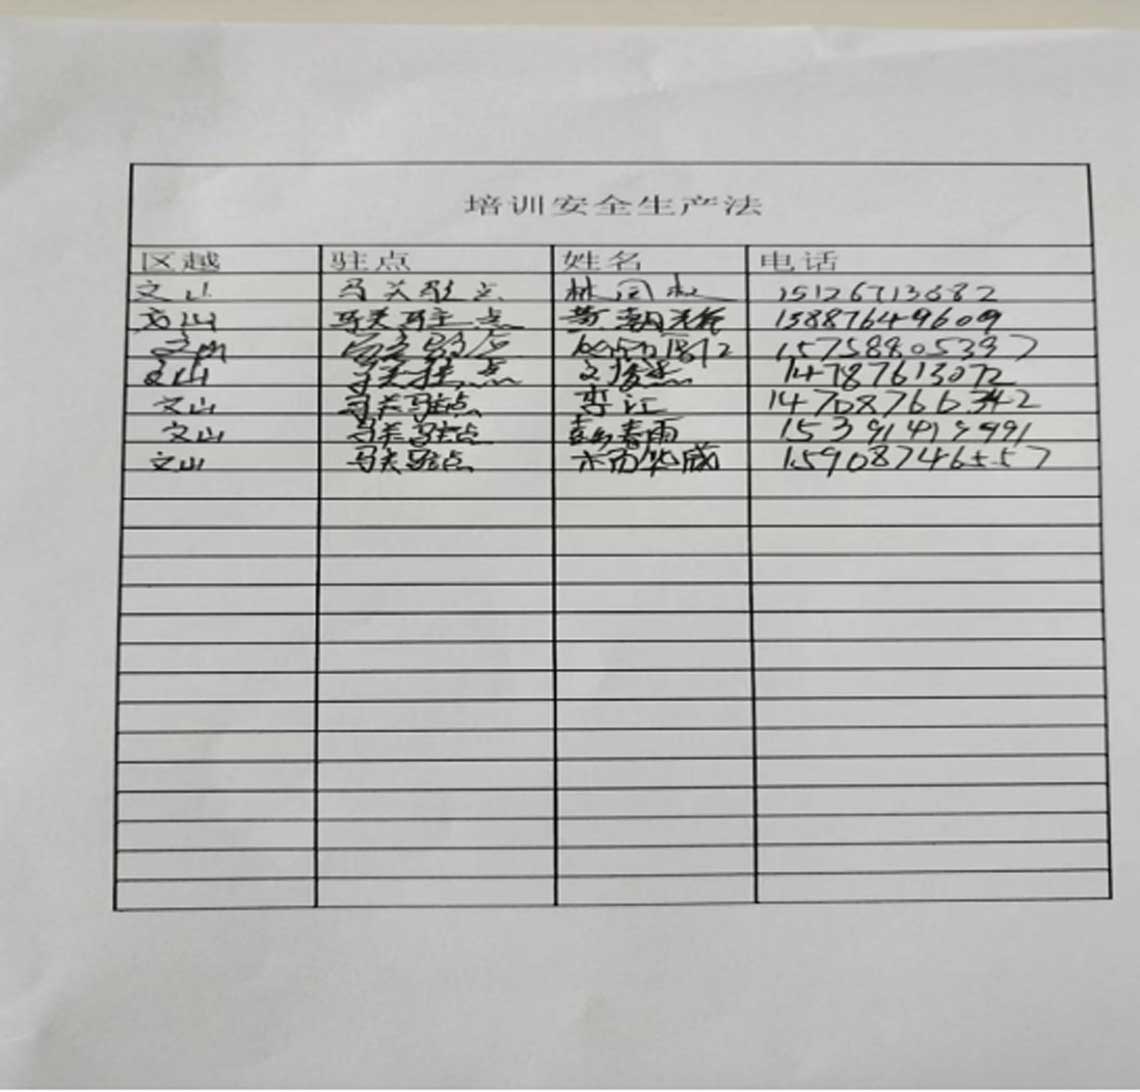 培训安全生产法
区越 驻点 姓名 电话
文山 马关驻点 15126713682
文山 马关驻点 15887649609
文山 15758805397
文山 马关驻点 14787613072
文山 马关驻点 李江 14708766342
文山 马关驻点 彭春雨 15391419991
文山 马关驻点 15908746557